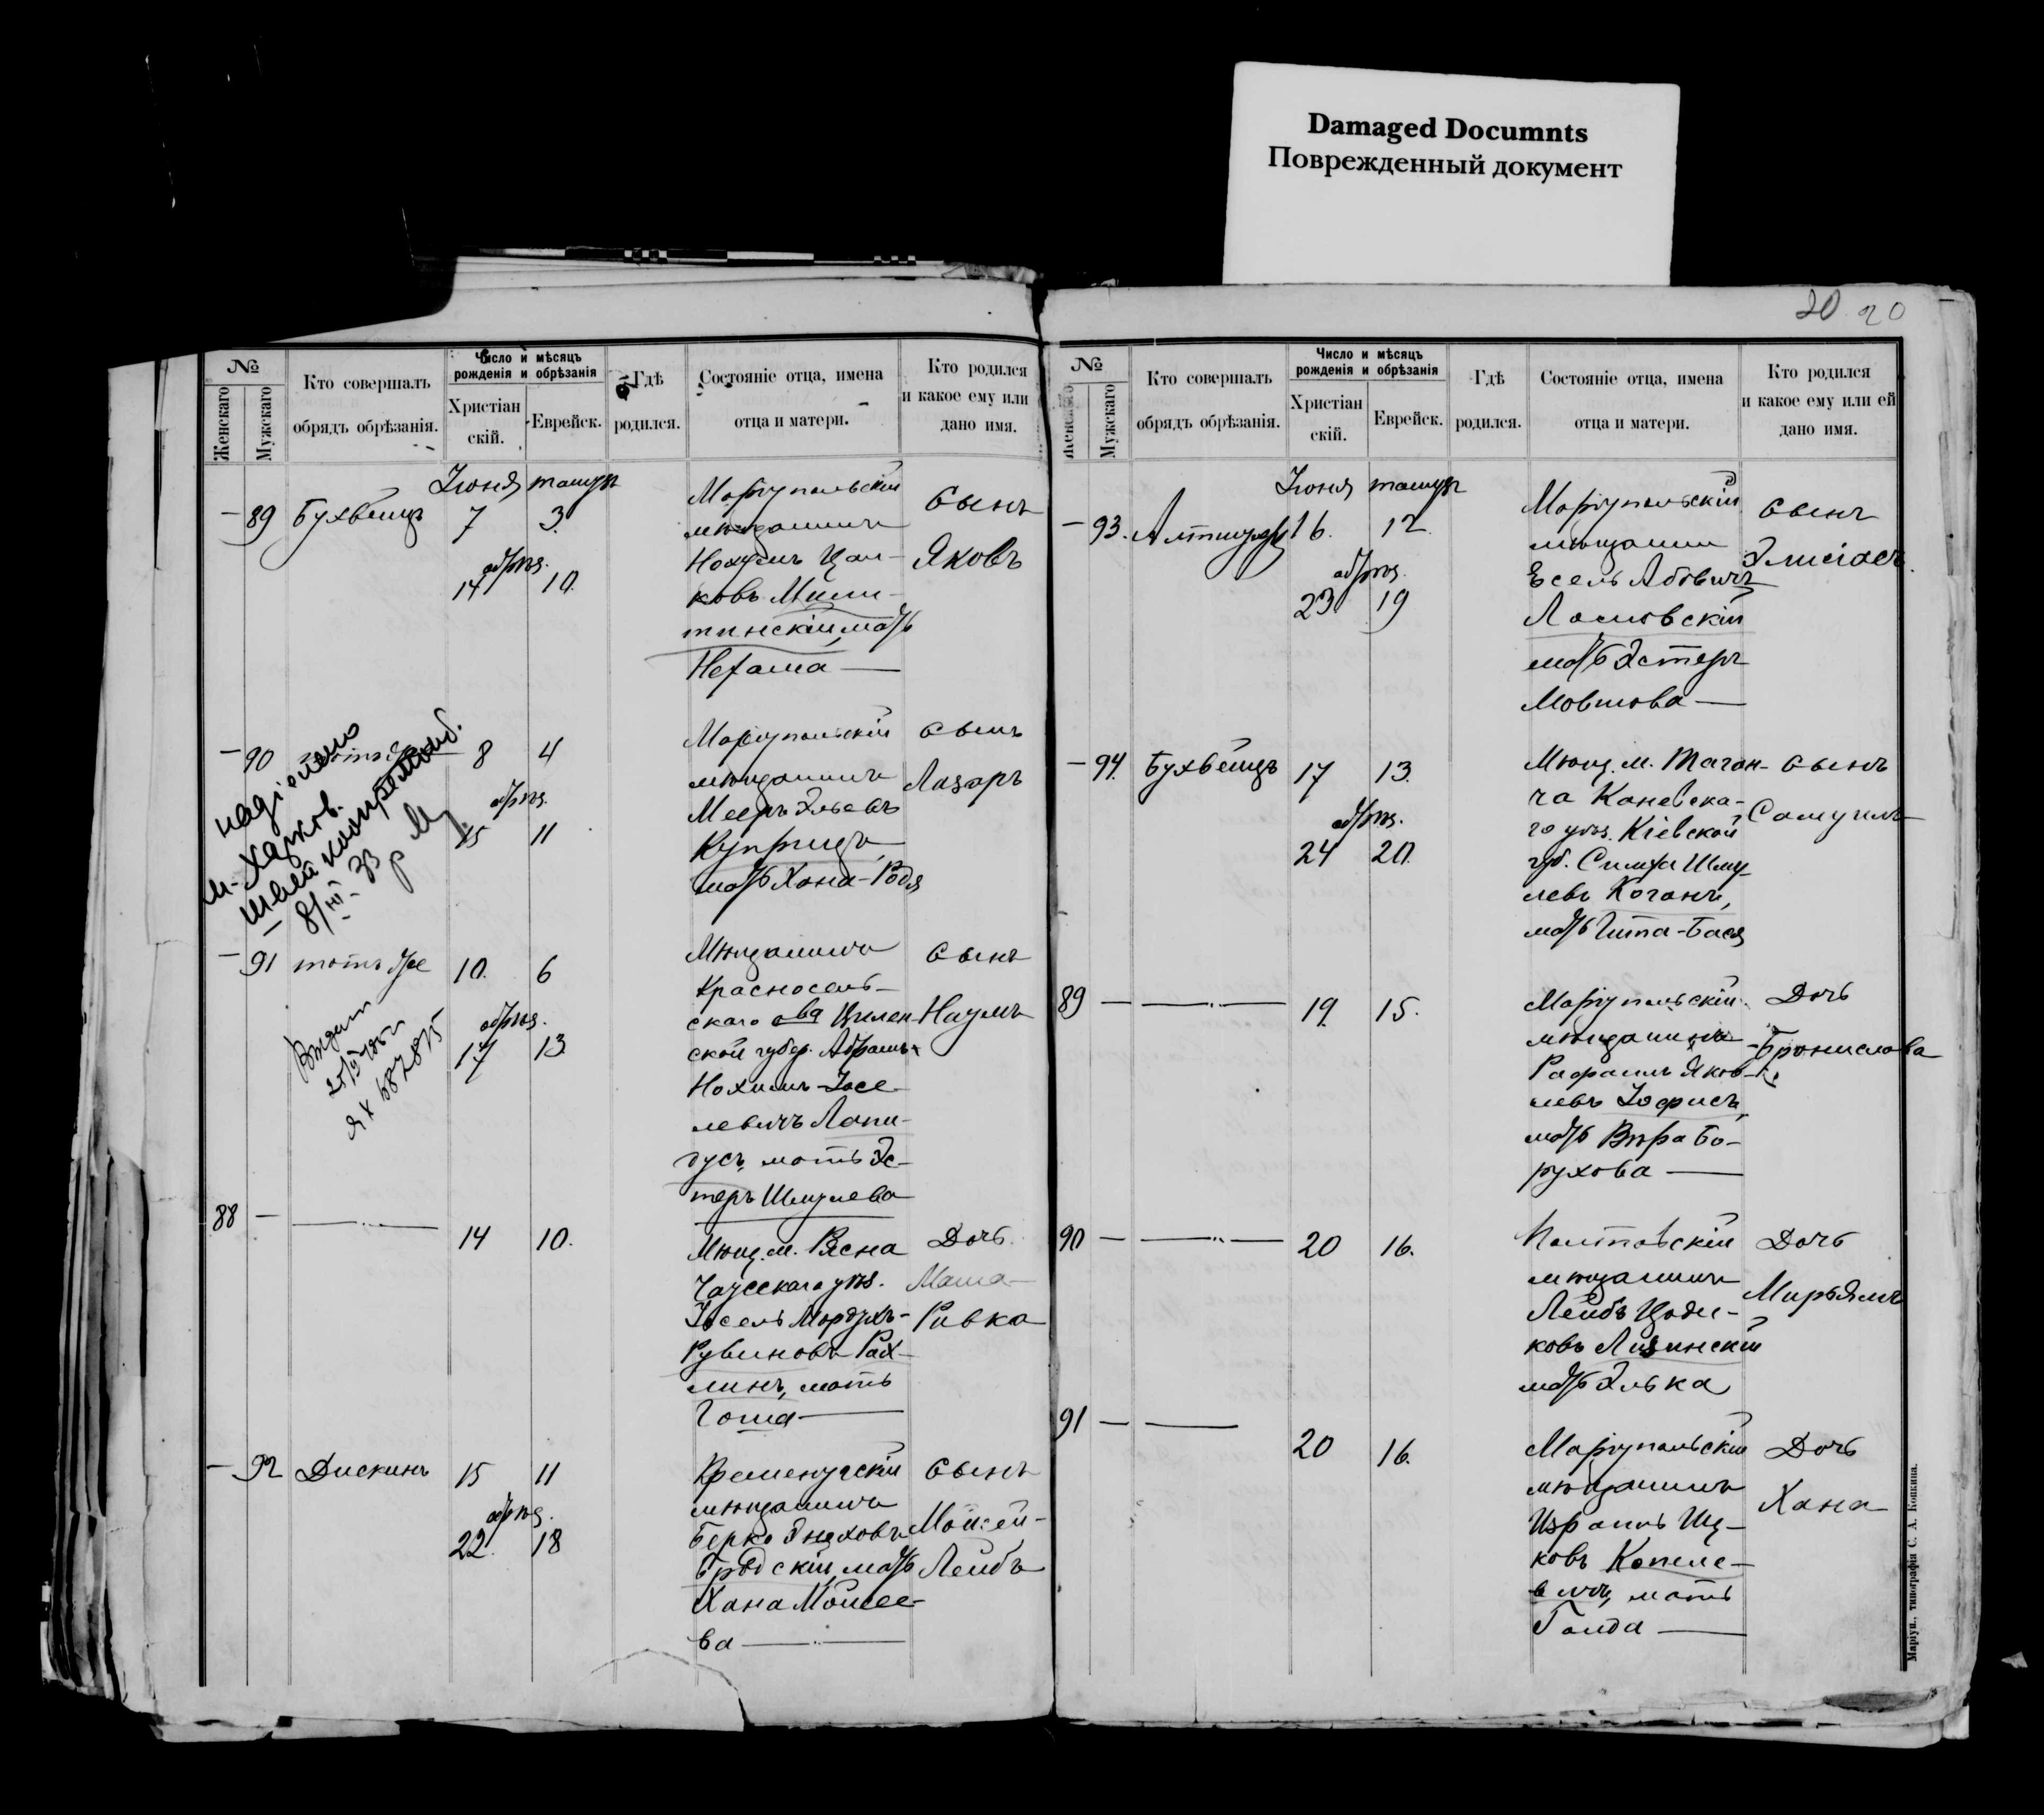 Damaged Documnts
Поврежденный документ
20 20
№
Женскаго
Мужскаго
Кто совершалъ
обрядъ обрѣзанія.
Число и мѣсяцъ
рожденія и обрѣзанія
Христіан
скій.
Еврейск.
Гдѣ
родился.
Состояніе отца, имена
отца и матери.
Кто родился
и какое ему или
дано имя.
Іюня тамузъ
— 89 Бухбиндъ 7 3
обрѣз.
14 10.
Маріупольскій
мѣщанинъ
Нохумъ
ковъ
мать
Нехама —
Сынъ
Яковъ
— 90 8 4
обрѣз.
15 11
м. Харков.
8/III 33 р
Маріупольскій
мѣщанинъ
Мееръ Эльевъ
мать Хана-Родя
Сынъ
Лазарь
— 91 тотъ же 10. 6
обрѣз.
17 13
ЯХ 687875
Мѣщанинъ
Красносель-
скаго о-ва Вилен-
ской губер. Абрамъ-
Нохимъ-Іосе-
левичъ Лапи-
дусъ, мать Эс-
теръ Шмулева
Сынъ
Наумъ
88 — — 14 10.
Мѣщ. м. Рясна
Чаусскаго уѣз.
Іосель Мордухъ-
Рувиновъ Рах-
линъ, мать
Гаша —
Дочь
Маша-
Ривка
— 92 Дискинъ 15 11
обрѣз.
22. 18
Кременчугскій
мѣщанинъ
Берко
Бродскій, мать
Хана Моисее-
ва —
Сынъ
Моисей-
Лейбъ
№
Женскаго
Мужскаго
Кто совершалъ
обрядъ обрѣзанія.
Число и мѣсяцъ
рожденія и обрѣзанія
Христіан
скій.
Еврейск.
Гдѣ
родился.
Состояніе отца, имена
отца и матери.
Кто родился
и какое ему или ей
дано имя.
Іюня тамузъ
— 93. Альтшулеръ 16. 12.
обрѣз.
23 19
Маріупольскій
мѣщанин
Есель Абовичъ
мать Эстеръ
Мовшова —
Сынъ
— 94. Бухбиндъ 17 13.
обрѣз.
24 20.
Мѣщ. м. Таган-
ча Каневска-
го уѣз. Кіевской
губ. Симха Шму-
левъ Коганъ,
мать Гита-Бася
Сынъ
Самуилъ
89 — — 19. 15.
Маріупольскій
мѣщанинъ
Рафаилъ Яков-
левъ Іофисъ,
мать Вѣра Бо-
рухова —
Дочь
Бронислава
90 — — 20 16.
Полтавскій
мѣщанинъ
Лейбъ Цоди-
ковъ
мать Элька
Дочь
Мирьямъ
91 — — 20 16.
Маріупольскій
мѣщанинъ
Израиль Иц-
ковъ Копеле-
вичъ, мать
Голда —
Дочь
Хана
Маріуп., типографія С. А. Копкина.